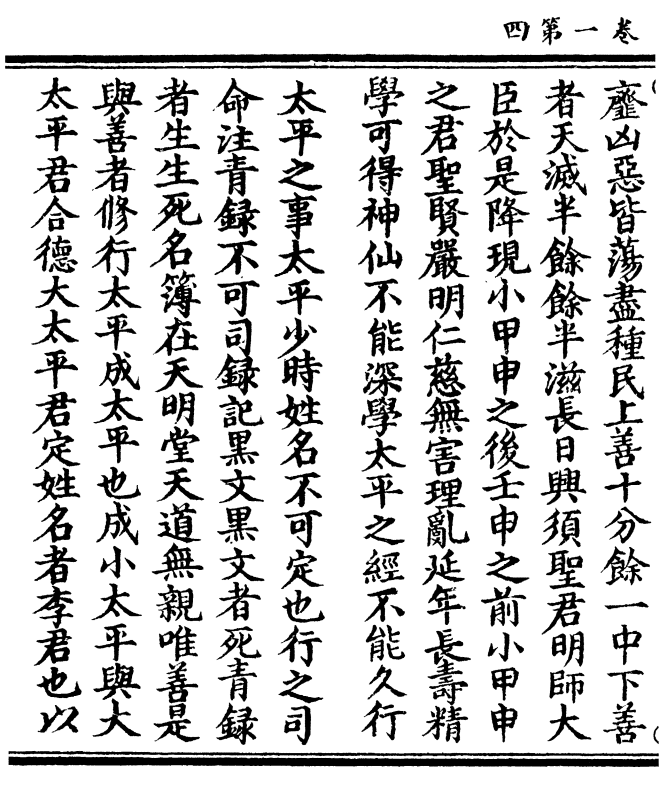 卷一第四
虀凶惡皆蕩盡種民上善十分餘一中下善
者天滅半餘餘半滋長日興須聖君明師大
臣於是降現小甲申之後壬申之前小甲申
之君聖賢嚴明仁慈無害理亂延年長壽精
學可得神仙不能深學太平之經不能久行
太平之事太平少時姓名不可定也行之司
命注青録不可司録記黑文黑文者死青録
者生生死名簿在天明堂天道無親唯善是
與善者修行太平成太平也成小太平與大
太平君合德大太平君定姓名者李君也以